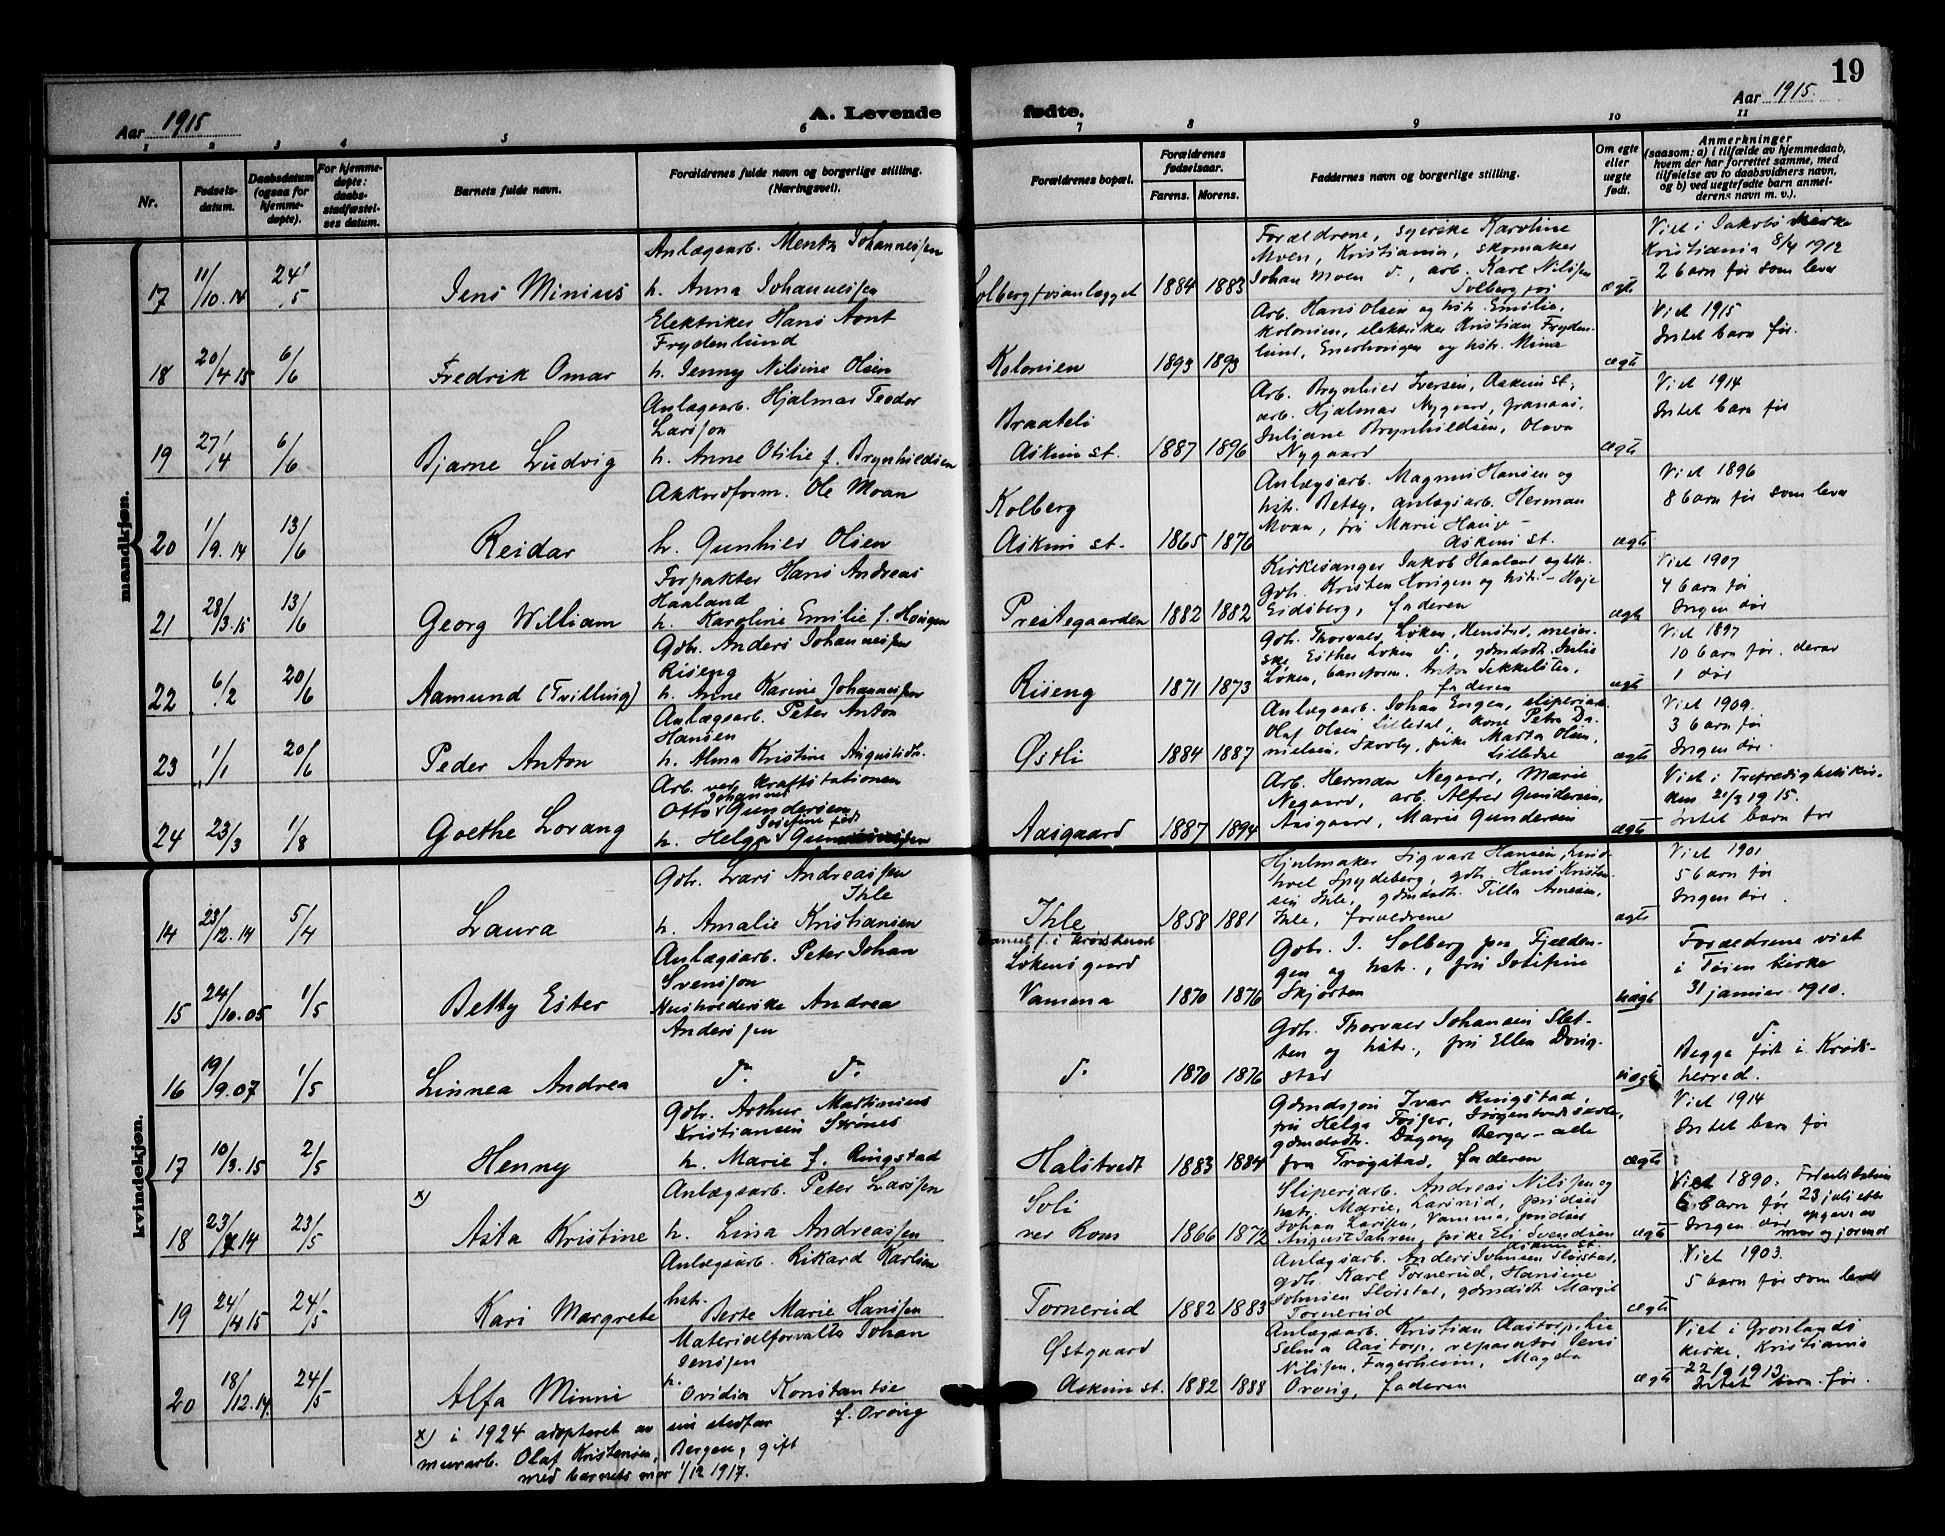 19
Aar 1915
A. Levende
fødte.
Aar 1915.
1 2 3 4 5 6 7 8 9 10 11
Nr.
Fødsels-
datum.
Daabsdatum
(ogsaa for
hjemme-
døpte).
For hjemme-
døpte:
daabs-
stadfæstel-
ses datum.
Barnets fulde navn.
Forældrenes fulde navn og borgerlige stilling.
(Næringsvei).
Forældrenes bopæl.
Forældrenes
fødselsaar.
Farens. Morens.
Faddernes navn og borgerlige stilling.
Om egte
eller
uegte
født.
Anmerkninger
(saasom: a) i tilfælde av hjemmedaab,
hvem der har forrettet samme, med
tilføielse av to daabsvidners navn,
og b) ved uegtefødte barn anmel-
derens navn m. v.).
mandkjøn.
17 11/10.14 24/5 Jens Minius
Anlægsarb. Mentz Johannessen
h. Anna Johannessen
Solbergfosanlægget 1884 1883
Forældrene, syerske Karoline
Moen, Kristiania, skomaker
Johan Moen d., arb. Karl Nilssen
Solbergfos
ægte
Viet i Jakobs kirke
Kristiania 8/4 1912
2 barn før som lever
18 20/4 15 6/6 Fredrik Omar
Elektriker Hans Aont
Frydenlund
h. Jenny Nilsine Olsen
Kolonien 1893 1893
Arb. Hans Olsen og hstr. Emilie,
Kolonien, elektriker Kristian Fryden-
lund, og hstr. Minna
ægte
Viet 1915
Intet barn før.
19 27/4 6/6 Bjarne Ludvig
Anlægsarb. Hjalmar Teodor
Larsson
h. Anne Otilie f. Brynhildsen
Braateli
Askim st. 1887 1896
Arb. Brynhild Iversen, Askim st.,
arb. Hjalmar Nygaard, Granaas,
Juliane Brynhildsen, Olava
Nygaard
ægte
Viet 1914
Intet barn før
20 1/9.14 13/6 Reidar
Akkordform. Ole Moan
h. Gunhild Olsen
Kolberg
Askim st. 1865 1876
Anlægsarb. Magnus Hansen og
hstr. Betsy, anlægsarb. Herman
Moan, fru Marie Haug –
Askim st.
ægte
Viet 1896
8 barn før som lever
21 28/3.15 13/6 Georg William
Forpakter Hans Andreas
Haaland
h. Karoline Emilie f. Homgen
Prestegaarden 1882 1882
Kirkesanger Jakob Haaland og hstr.
Gdb. Kristen Homgen og hstr. –
Eidsberg, faderen
ægte
Viet 1907
4 barn før
Ingen død
22 6/2 20/6 Aamund (Tvilling)
Gdb. Anders Johannessen
Riseng
h. Anne Karine Johannessen
Riseng 1871 1873
Gdb. Thorvald Løken, Henstad, meier-
ske Esther Løken d., gdmdatt. Julie
Løken, baneform. Anton Sekkelsten,
faderen
ægte
Viet 1897
10 barn før. derav
1 død
23 1/1 20/6 Peder Anton
Anlægsarb. Peter Anton
Hansen
h. Alma Kristine Augustidtr.
Østli 1884 1887
Anlægsarb. Johan Engen, sliperiarb.
Olaf Olsen Lilledal, kone Petra Da-
nielsen, Skovby, pike Marta Olsen,
Lilledal
ægte
Viet 1909.
3 barn før
Ingen død.
24 23/3 1/8 Goethe Lorang
Arb. ved Kraftstationen
Otto Johannes Gundersen
h. Helga Josefine født
Aasgaard 1887 1894
Arb. Herman Negaard, Marie
Negaard, arb. Alfred Gundersen,
Aasgaard, Marie Gundersen
ægte
Viet i Trefoldighetskir-
ken 21/3 1915.
Intet barn før
kvindekjøn.
14 23/12.14 5/4 Laura
Gdb. Lars Andreassen
Ihle
h. Amalie Kristiansen
Ihle 1858 1881
Hjulmaker Sigvart Hansen, Lund-
hvel Spydeberg, gdb. Hans Kristen-
sen Ihle, gdmdatt. Tilla Arnesen,
Ihle, forældrene
ægte
Viet 1901
5 barn før
Ingen død.
15 24/10.05 1/5 Betty Ester
Anlægsarb. Peter Johan
Svensson
Husholderske Andrea
Anderssen
Løkensgaard
Vamma 1870 1876
Gdb. J. Solberg paa Fjælden-
gen og hstr., fru Josefine
Skjørten
uægte
Forældrene viet
i Tøien kirke
31 januar 1910.
16 19/9.07 1/5 Linnea Andrea
do do
do 1870 1876
Gdb. Thorvald Johansen Slet-
ten og hstr., fru Ellen Dæng-
stad
uægte
do
Begge født i Krøds-
herred.
17 10/3.15 2/5 Henny
Gdb. Arthur Martinius
Kristiansen Strønes
h. Marie f. Ringstad
Halstvedt 1883 1884
Gdmdssøn Ivar Ringstad,
fru Helga Fosser,
gdmdatt. Dagny Berger – alle
fra Trøgstad, faderen
ægte
Viet 1914
Intet barn før
x)
18 23/7 14 23/5 Asta Kristine
Anlægsarb. Peter Larssen
h. Lina Andreassen
Soli
ved Rom 1866 1872
Sliperiarb. Andreas Nilssen og
hstr. Marie, Larsmid,
Johan Larssen, Vamma,
August Jahren, pike Eli Svendsen
Askim st.
ægte
Viet 1890.
6 barn før
Ingen død
23 juli efter
opgave av
mor og jormor
19 24/4 15 24/5 Kari Margrete
Anlægsarb. Rikard Karlsen
hstr.
Berte Marie Hanssen
Tornerud 1882 1883
Anlægsarb. Anders Johnsen Slorstad,
gdb. Karl Tornerud, Hansine
Johnsen Slorstad, gdmdatt. Margit
Tornerud
ægte
Viet 1903.
5 barn før som lever
20 18/12.14. 24/5 Alfa Minni
Materialforvalter Johan
Jenssen
h.
Ovidia Konstantse
f. Orvig
Østgaard
Askim st. 1882 1888
Anlægsarb. Kristian Aastorp,
Selma Aastorp, reparatør Jens
Nilssen, Fagerheim, Magda
Orvig, faderen
ægte
Viet i Grønlands
kirke, Kristiania
22/9 1913
Intet barn før.
x) i 1924 adopteret av sin stedfar
murarb. Olaf Kristensen, Bergen, gift
med barnets mor 1/12 1917.